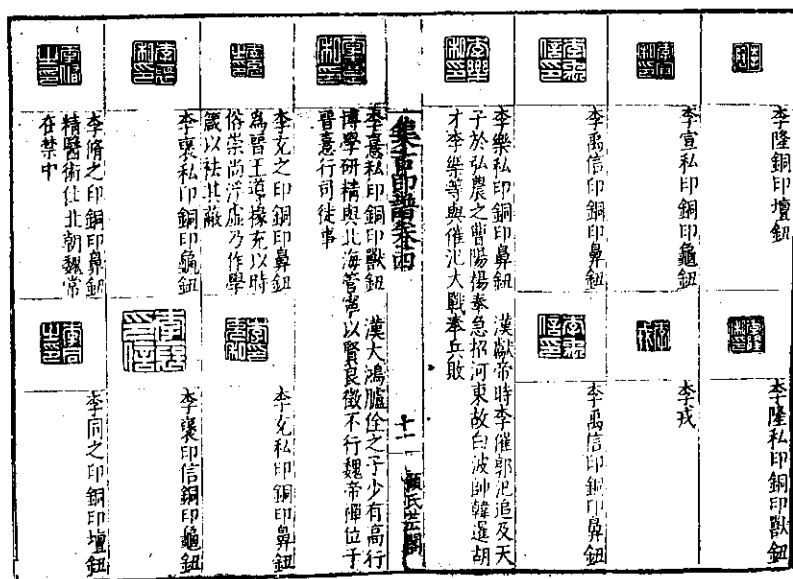 李隆銅印壇鈕
李隆私印銅印獸鈕
李宣私印銅印龜鈕
李戎
李禹信印銅印鼻鈕
李禹信印銅印鼻鈕
李樂私印銅印鼻鈕　漢獻帝時李傕郭汜追及天
子於弘農之曹陽楊奉急招河東故白波帥韓暹胡
才李樂等與傕汜大戰奉兵敗
集古印譜卷四
十一
顧氏芸閣
李憙私印銅印獸鈕　漢大鴻臚佺之子少有高行
博學研精與北海管寧以賢良徵不行魏帝禪位于
晉憙行司徒事
李充之印銅印鼻鈕
為晉王導掾充以時
俗崇尚浮虛乃作學
箴以袪其蔽
李充私印銅印鼻鈕
李褒私印銅印龜鈕
李褒印信銅印龜鈕
李脩之印銅印鼻鈕
精醫術仕北朝魏常
在禁中
李同之印銅印壇鈕